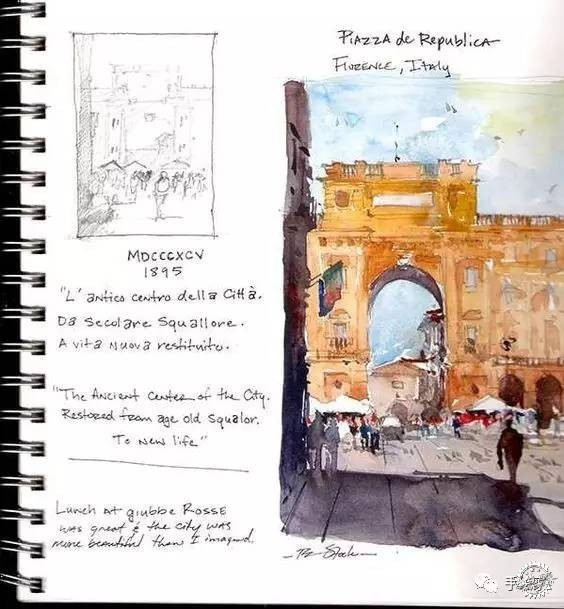 PIAZZA de Republica
FLORENCE, ITALY
MDCCCXCV
1895
"L' antico centro della Città.
Da Secolare Squallore.
A vita Nuova restituito.
"The Ancient Center of the City.
Restored from age old Squalor.
To New life"
LUNCH AT giubbe ROSSE
was great & the city was
more beautiful than I imagined.